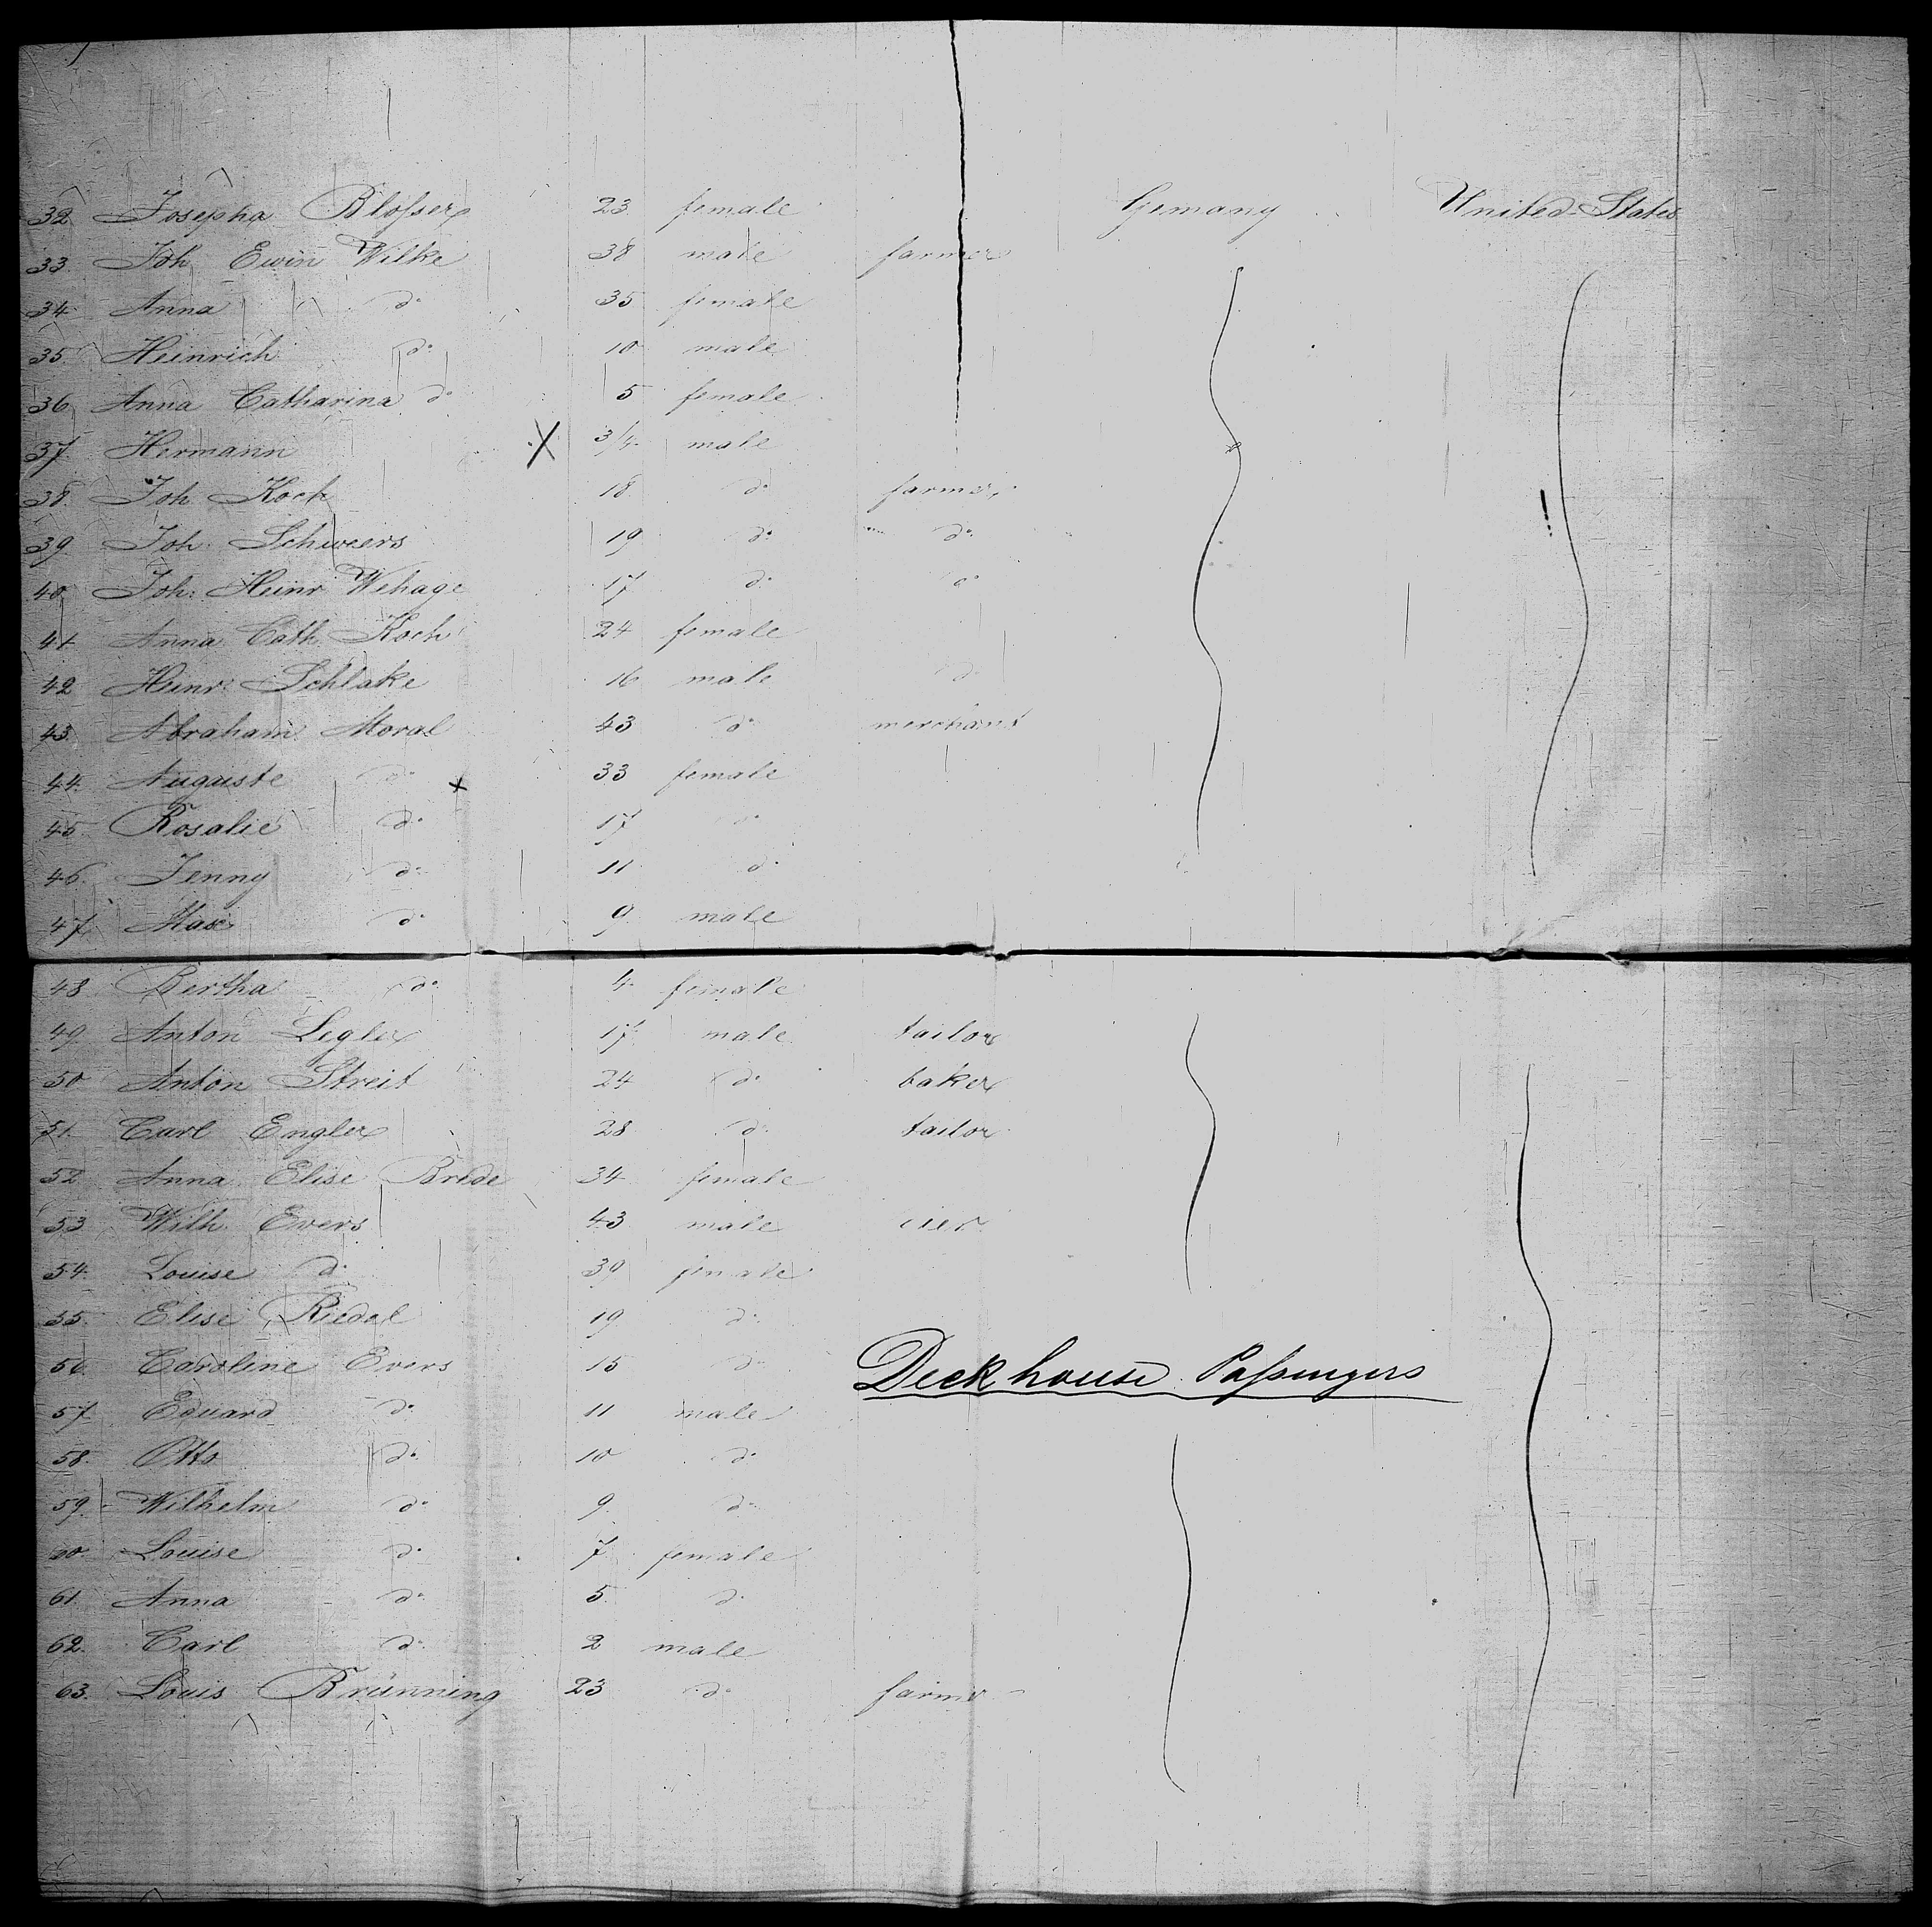 32 Josepha Blosser 23 female Gemany United States
33 Joh. Ewin Wilke 38 male farmer
34 Anna do 35 female
35 Heinrich do 10 male
36 Anna Catharina do 5 female
37 Hermann 3/4 male
38 Joh. Koch 18 do farmer
39 Joh. Schweers 19 do do
40 Joh. Heinr Wehage 17 do do
41 Anna Cath. Koch 24 female
42 Heinr. Schlake 16 male do
43 Abraham Moral 43 do merchant
44 Auguste do 33 female
45 Rosalie do 17 do
46 Jenny do 11 do
47 Max do 9 male
48 Bertha do 4 female
49 Anton Legler 17 male tailor
50 Anton Streit 24 do baker
51 Carl Engler 28 do tailor
52 Anna Elise Brede 34 female
53 Wilh. Evers 43 male
54 Louise do 39 female
55 Elise Riedel 19 do
56 Caroline Evers 15 do
Deckhouse Passengers
57 Eduard do 11 male
58 Otto do 10 do
59 Wilhelm do 9 do
60 Louise do 7 female
61 Anna do 5 do
62 Carl do 2 male
63 Louis Brünning 23 do farmer